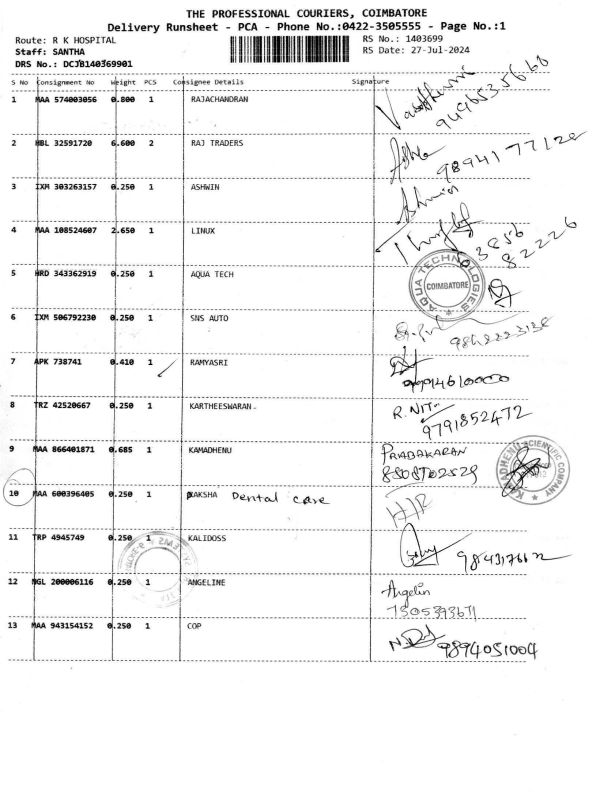 THE PROFESSIONAL COURIERS, COIMBATORE
Delivery Runsheet - PCA - Phone No.:0422-3505555 - Page No.:1
Route: R K HOSPITAL
RS No.: 1403699
Staff: SANTHA
RS Date: 27-Jul-2024
DRS No.: DCJB140369901
S No Consignment No Weight PCS Consignee Details Signature
1 MAA 574003056 0.800 1 RAJACHANDRAN
2 HBL 32591720 6.600 2 RAJ TRADERS
9894177120
3 IXM 303263157 0.250 1 ASHWIN Ashwin
4 MAA 108524607 2.650 1 LINUX
82226
5 HRD 343362919 0.250 1 AQUA TECH
AQUA TECHNOLOGIES
COIMBATORE
6 IXM 506792230 0.250 1 SNS AUTO
7 APK 738741 0.410 1 RAMYASRI
8 TRZ 42520667 0.250 1 KARTHEESWARAN
9791852472
9 MAA 866401871 0.685 1 KAMADHENU PRABAKARAN
KAMADHENU SCIENTIFIC COMPANY
10 MAA 600396405 0.250 1 RAKSHA Dental care
11 TRP 4945749 0.250 1 KALIDOSS
12 NGL 200006116 0.250 1 ANGELINE Angelin
13 MAA 943154152 0.250 1 COP
9894051004